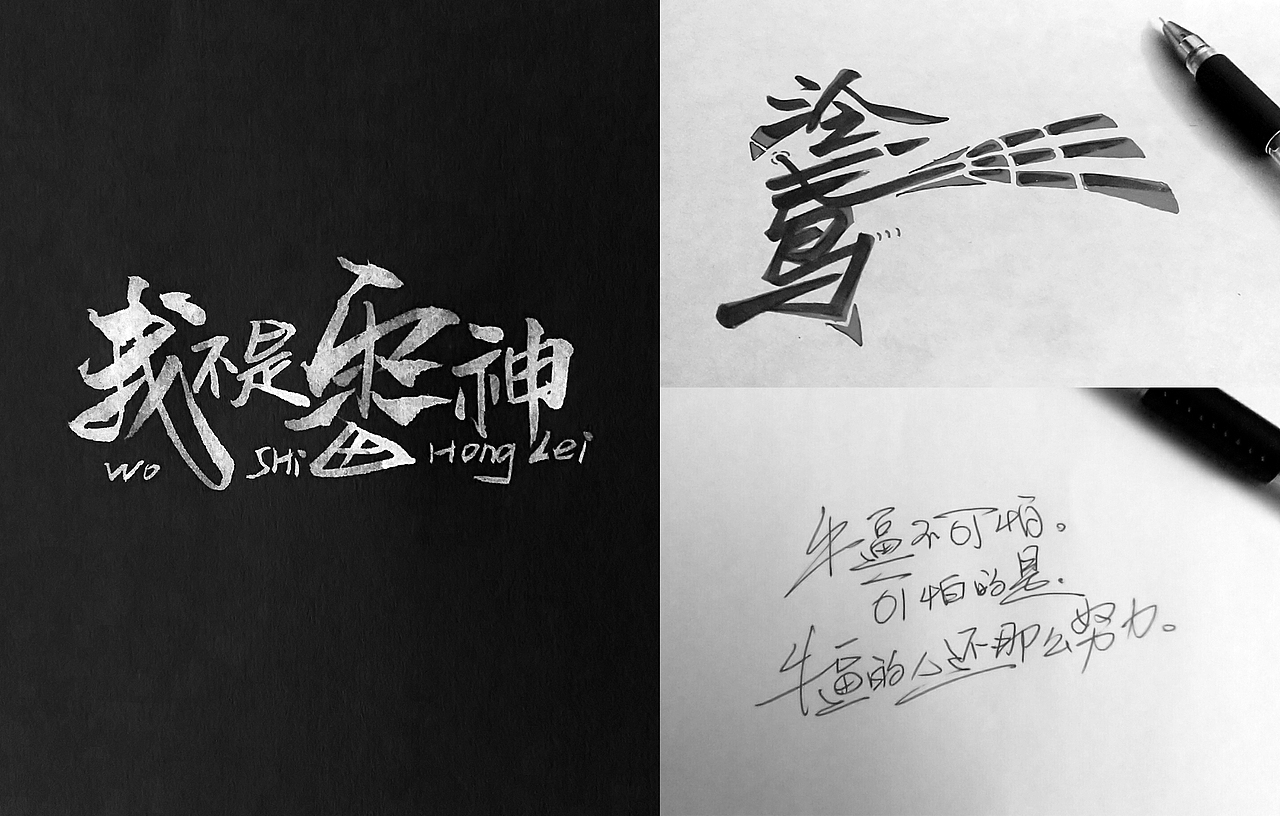 我不是雷神
Wo SHi Hong Lei
牛逼不可怕。
可怕的是.
牛逼的人还那么努力。